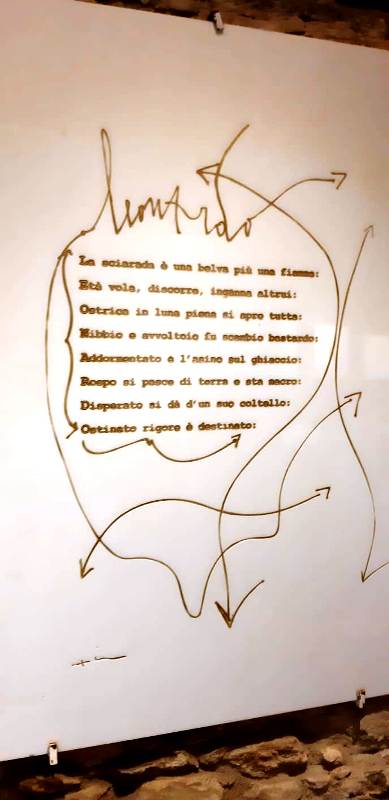 leonardo
La sciarada è una belva più una fiamma:
Età vola, discorre, inganna altrui:
Ostrica in luna piena si apre tutta:
Nibbio e avvoltoio fu scambio bastardo:
Addormentato e l'asino sul ghiaccio:
Rospo si pasce di terra e sta macro:
Disperato si dà d'un suo coltello:
Ostinato rigore è destinato: